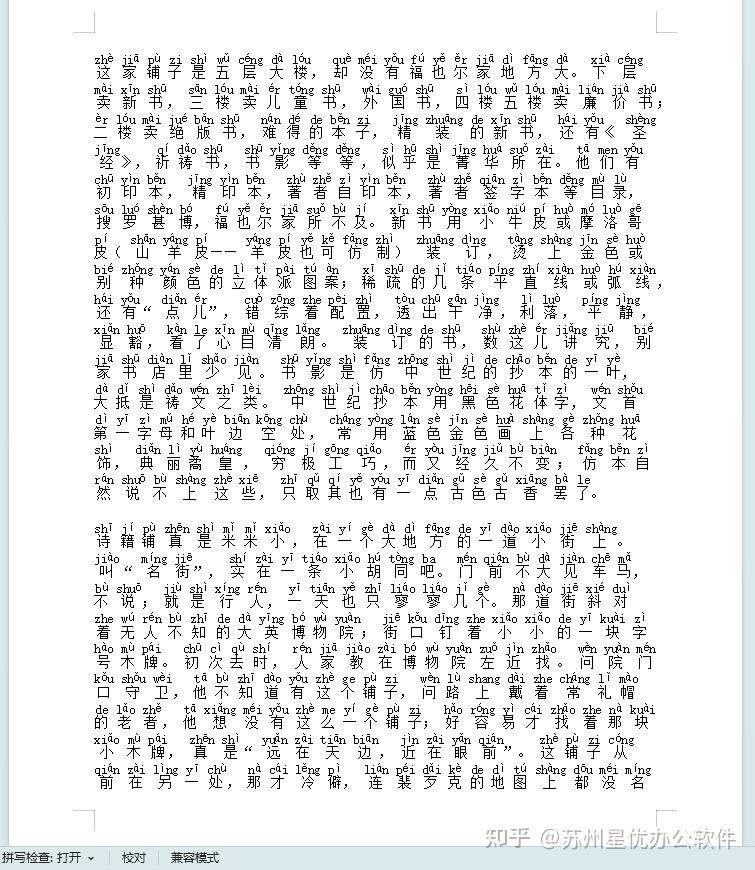 zhè jiā pù zi shì wǔ céng dà lóu què méi yǒu fú yě ěr jiā dì fāng dà xià céng
这家铺子是五层大楼，却没有福也尔家地方大。下层
mài xīn shū sān lóu mài ér tóng shū wài guó shū sì lóu wǔ lóu mài lián jià shū
卖新书，三楼卖儿童书，外国书，四楼五楼卖廉价书；
èr lóu mài jué bǎn shū nán dé de běn zi jīng zhuāng de xīn shū hái yǒu shèng
二楼卖绝版书，难得的本子，精装的新书，还有《圣
jīng qí dǎo shū shū yǐng děng děng sì hū shì jīng huá suǒ zài tā men yǒu
经》，祈祷书，书影等等，似乎是菁华所在。他们有
chū yìn běn jīng yìn běn zhù zhě zì yìn běn zhù zhě qiān zì běn děng mù lù
初印本，精印本，著者自印本，著者签字本等目录，
sōu luó shèn bó fú yě ěr jiā suǒ bù jí xīn shū yòng xiǎo niú pí huò mó luò gē
搜罗甚博，福也尔家所不及。新书用小牛皮或摩洛哥
pí shān yáng pí yáng pí yě kě fǎng zhì zhuāng dìng tàng shàng jīn sè huò
皮（山羊皮——羊皮也可仿制）装订，烫上金色或
bié zhǒng yán sè de lì tǐ pài tú àn xī shū de jǐ tiáo píng zhí xiàn huò hú xiàn
别种颜色的立体派图案；稀疏的几条平直线或弧线，
hái yǒu diǎn ér cuò zōng zhe pèi zhì tòu chū gān jìng lì luò píng jìng
还有“点儿”，错综着配置，透出干净，利落，平静，
xiǎn huō kàn le xīn mù qīng lǎng zhuāng dìng de shū shù zhè ér jiǎng jiū bié
显豁，看了心目清朗。装订的书，数这儿讲究，别
jiā shū diàn lǐ shǎo jiàn shū yǐng shì fǎng zhōng shì jì de chāo běn de yī yè
家书店里少见。书影是仿中世纪的抄本的一叶，
dà dǐ shì dǎo wén zhī lèi zhōng shì jì chāo běn yòng hēi sè huā tǐ zì wén shǒu
大抵是祷文之类。中世纪抄本用黑色花体字，文首
dì yī zì mǔ hé yè biān kōng chù cháng yòng lán sè jīn sè huà shàng gè zhǒng huā
第一字母和叶边空处，常用蓝色金色画上各种花
shì diǎn lì yù huáng qióng jí gōng qiǎo ér yòu jīng jiǔ bù biàn fǎng běn zì
饰，典丽矞皇，穷极工巧，而又经久不变；仿本自
rán shuō bù shàng zhè xiē zhī qǔ qí yě yǒu yī diǎn gǔ sè gǔ xiāng bà le
然说不上这些，只取其也有一点古色古香罢了。
shī jí pù zhēn shì mǐ mǐ xiǎo zài yí gè dà dì fāng de yī dào xiǎo jiē shàng
诗籍铺真是米米小，在一个大地方的一道小街上。
jiào míng jiē shí zài yī tiáo xiǎo hú tòng ba mén qián bù dà jiàn chē mǎ
叫“名街”，实在一条小胡同吧。门前不大见车马，
bù shuō jiù shì xíng rén yī tiān yě zhī liáo liáo jǐ gè nà dào jiē xié duì
不说；就是行人，一天也只寥寥几个。那道街斜对
zhe wú rén bù zhī de dà yīng bó wù yuàn jiē kǒu dīng zhe xiǎo xiǎo de yī kuài zì
着无人不知的大英博物院；街口钉着小小的一块字
hào mù pái chū cì qù shí rén jiā jiào zài bó wù yuàn zuǒ jìn zhǎo wèn yuàn mén
号木牌。初次去时，人家教在博物院左近找。问院门
kǒu shǒu wèi tā bù zhī dào yǒu zhè ge pù zi wèn lù shang dài zhe cháng lǐ mào
口守卫，他不知道有这个铺子，问路上戴着常礼帽
de lǎo zhě tā xiǎng méi yǒu zhè me yī gè pù zi hǎo róng yì cái zhǎo zhe nà kuài
的老者，他想没有这么一个铺子；好容易才找着那块
xiǎo mù pái zhēn shì yuǎn zài tiān biān jìn zài yǎn qián zhè pù zi cóng
小木牌，真是“远在天边，近在眼前”。这铺子从
qián zài lìng yī chù nà cái lěng pì lián péi dāi kè de dì tú shàng dōu méi míng
前在另一处，那才冷僻，连裴歹克的地图上都没名
知乎 @苏州星优办公软件
拼写检查: 打开 校对 兼容模式